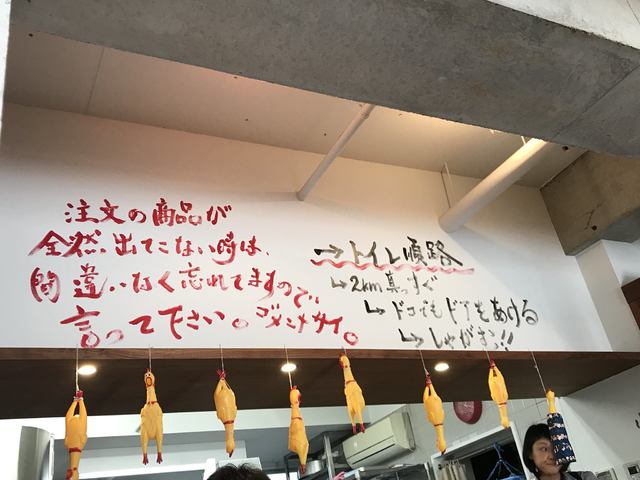 注文の商品が
全然、出てこない時は、
間違いなく忘れてますので、
言って下さい。ゴメンナサイ。
→トイレ順路
↳2km真っすぐ
↳ドコでもドアをあける
↳しゃがむ!!